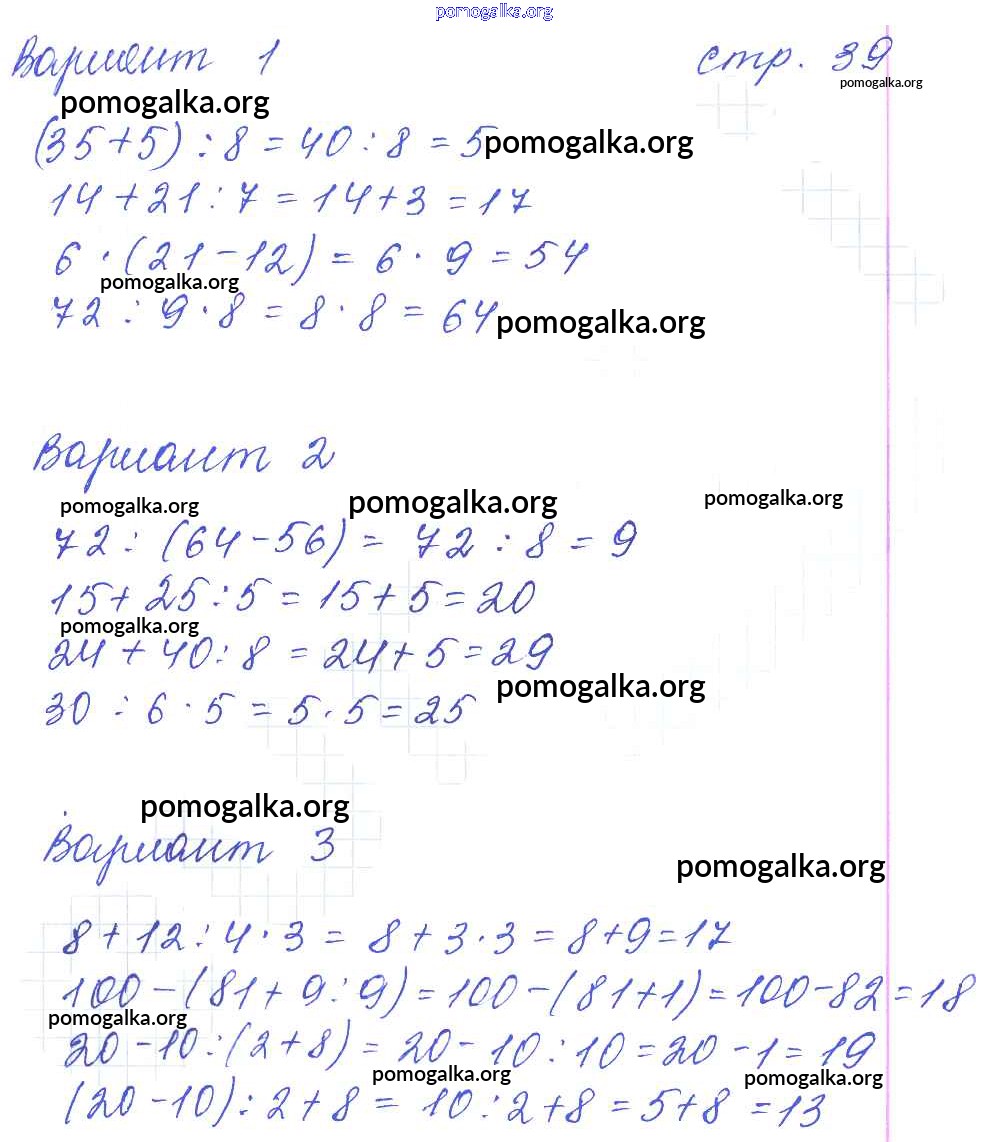 pomogalka.org
Вариант 1 стр. 39
pomogalka.org
pomogalka.org
(35+5) : 8 = 40 : 8 = 5
pomogalka.org
14 + 21 : 7 = 14 + 3 = 17
6 · (21 - 12) = 6 · 9 = 54
pomogalka.org
72 : 9 · 8 = 8 · 8 = 64
pomogalka.org
Вариант 2
pomogalka.org pomogalka.org pomogalka.org
72 : (64 - 56) = 72 : 8 = 9
15 + 25 : 5 = 15 + 5 = 20
pomogalka.org
24 + 40 : 8 = 24 + 5 = 29
pomogalka.org
30 : 6 · 5 = 5 · 5 = 25
pomogalka.org
Вариант 3
pomogalka.org
8 + 12 : 4 · 3 = 8 + 3 · 3 = 8 + 9 = 17
100 - (81 + 9 : 9) = 100 - (81 + 1) = 100 - 82 = 18
pomogalka.org
20 - 10 : (2 + 8) = 20 - 10 : 10 = 20 - 1 = 19
pomogalka.org pomogalka.org
(20 - 10) : 2 + 8 = 10 : 2 + 8 = 5 + 8 = 13